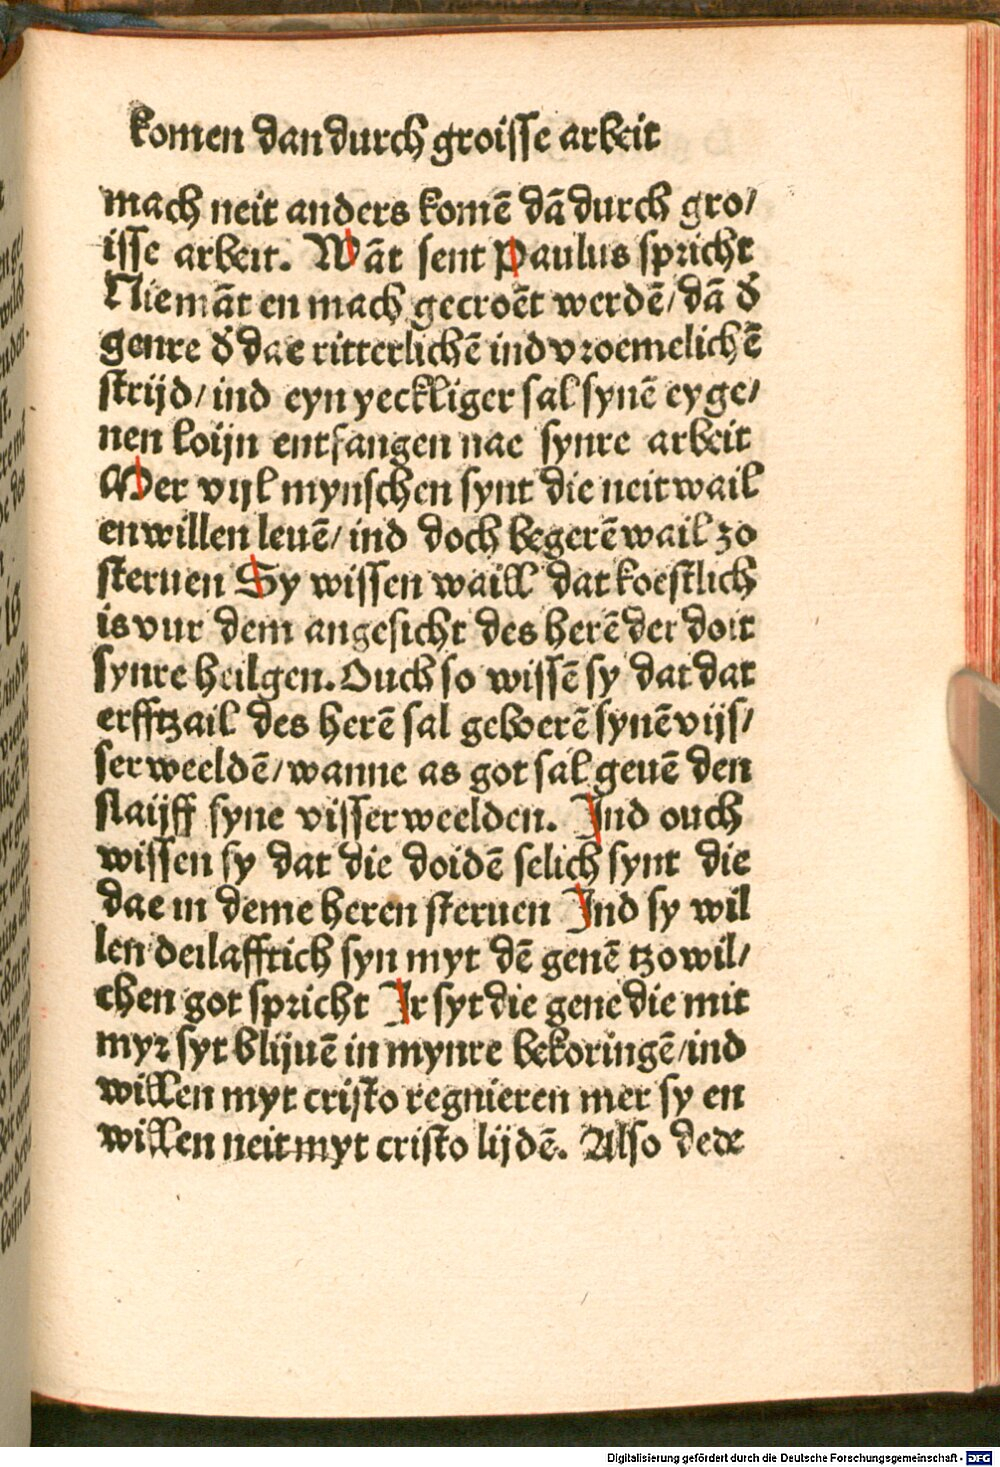 komen dan durch groisse arbeit
mach neit anders komē dā durch gro/
isse arbeit. Wāt sent Paulus spricht
Niemāt en mach gecroēt werdē/ dā d̓
genre d̓ dae ritterlichē ind vroemelichē
strijd/ ind eyn yeckliger sal synē eyge/
nen loijn entfangen nae synre arbeit
Mer vijl mynschen synt die neit wail
en willen leuē/ ind doch begerē wail zo
steruen Sy wissen waill dat koestlich
is vur dem angesicht des herē der doit
synre heilgen. Ouch so wissē sy dat dat
erfftzail des herē sal geboerē synē vijs/
ser weeldē/ wanne as got sal geuē den
slaijff syne visserweelden. Ind ouch
wissen sy dat die doidē selich synt die
dae in deme heren steruen Ind sy wil
len deilafftich syn myt dē genē tzo wil/
chen got spricht Ir syt die gene die mit
myr syt blijuē in mynre bekoringē/ ind
willen myt cristo regnieren mer sy en
willen neit myt cristo lijdē. Also dede
Digitalisierung gefördert durch die Deutsche Forschungsgemeinschaft - DFG